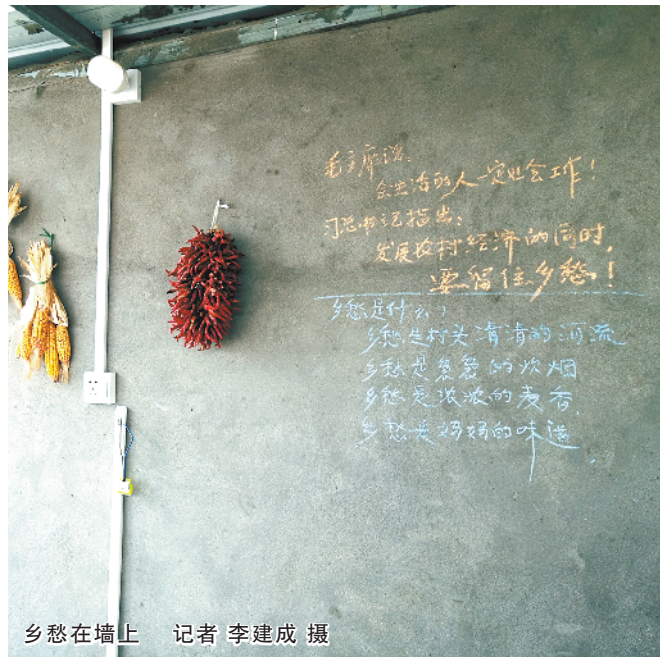 毛主席说:
会生活的人一定也会工作!
习总书记指出:
发展农村经济的同时,
要留住乡愁!
乡愁是什么?
乡愁是村头清清的河流
乡愁是袅袅的炊烟
乡愁是浓浓的麦香,
乡愁是妈妈的味道.
乡愁在墙上 记者 李建成 摄